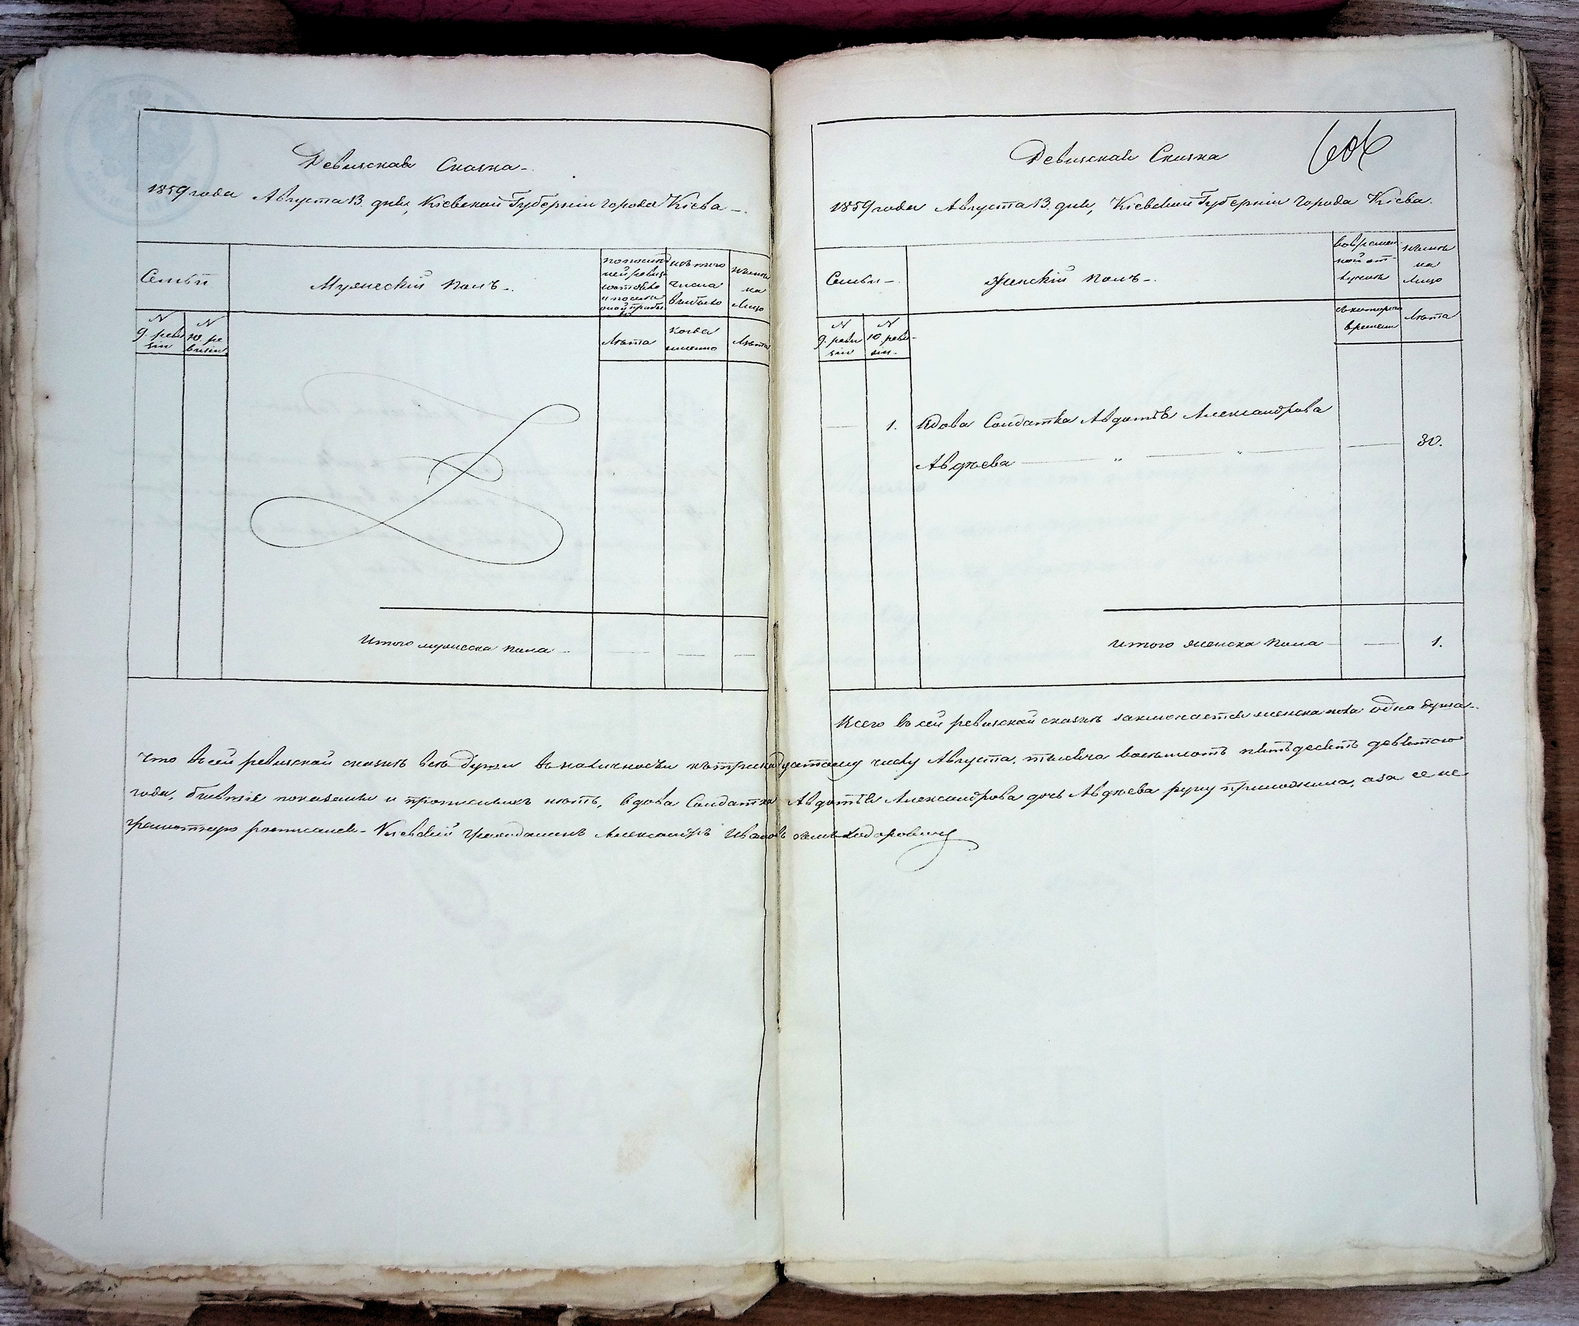 Ревизская Сказка.
1859 года Августа 13 дня, Кіевской Губерніи города Кіева
Семьи
Мужескій полъ
изъ того числа выбыло
нынѣ на лицо
N 9 ревизіи
N 10 ревизіи
Лѣта
когда именно
Лѣта
Итого мужеска пола
Ревизская Сказка
606
1859 года Августа 13 дня, Кіевской Губерніи города Кіева.
Семьи
Женскій полъ
во временной отлучкѣ
нынѣ на лицо
N 9 ревизіи
N 10 ревизіи
съ котораго времени
Лѣта
1. Вдова Солдатка Авдотья Александрова
Авдѣева
30.
Итого женска пола
1.
Всего въ сей ревизской сказкѣ заключается женска пола одна душа
Что въ сей ревизской сказкѣ всѣ души въ наличности къ тринадцатому числу Августа, тысяча восемьсотъ пятьдесятъ девятого
года, бывшіе показаны и прописныхъ нѣтъ, вдова Солдатка Авдотья Александрова дочь Авдѣева руку приложила, а за ее не
грамотную росписался Кіевскій гражданинъ Александръ Ивановъ сынъ